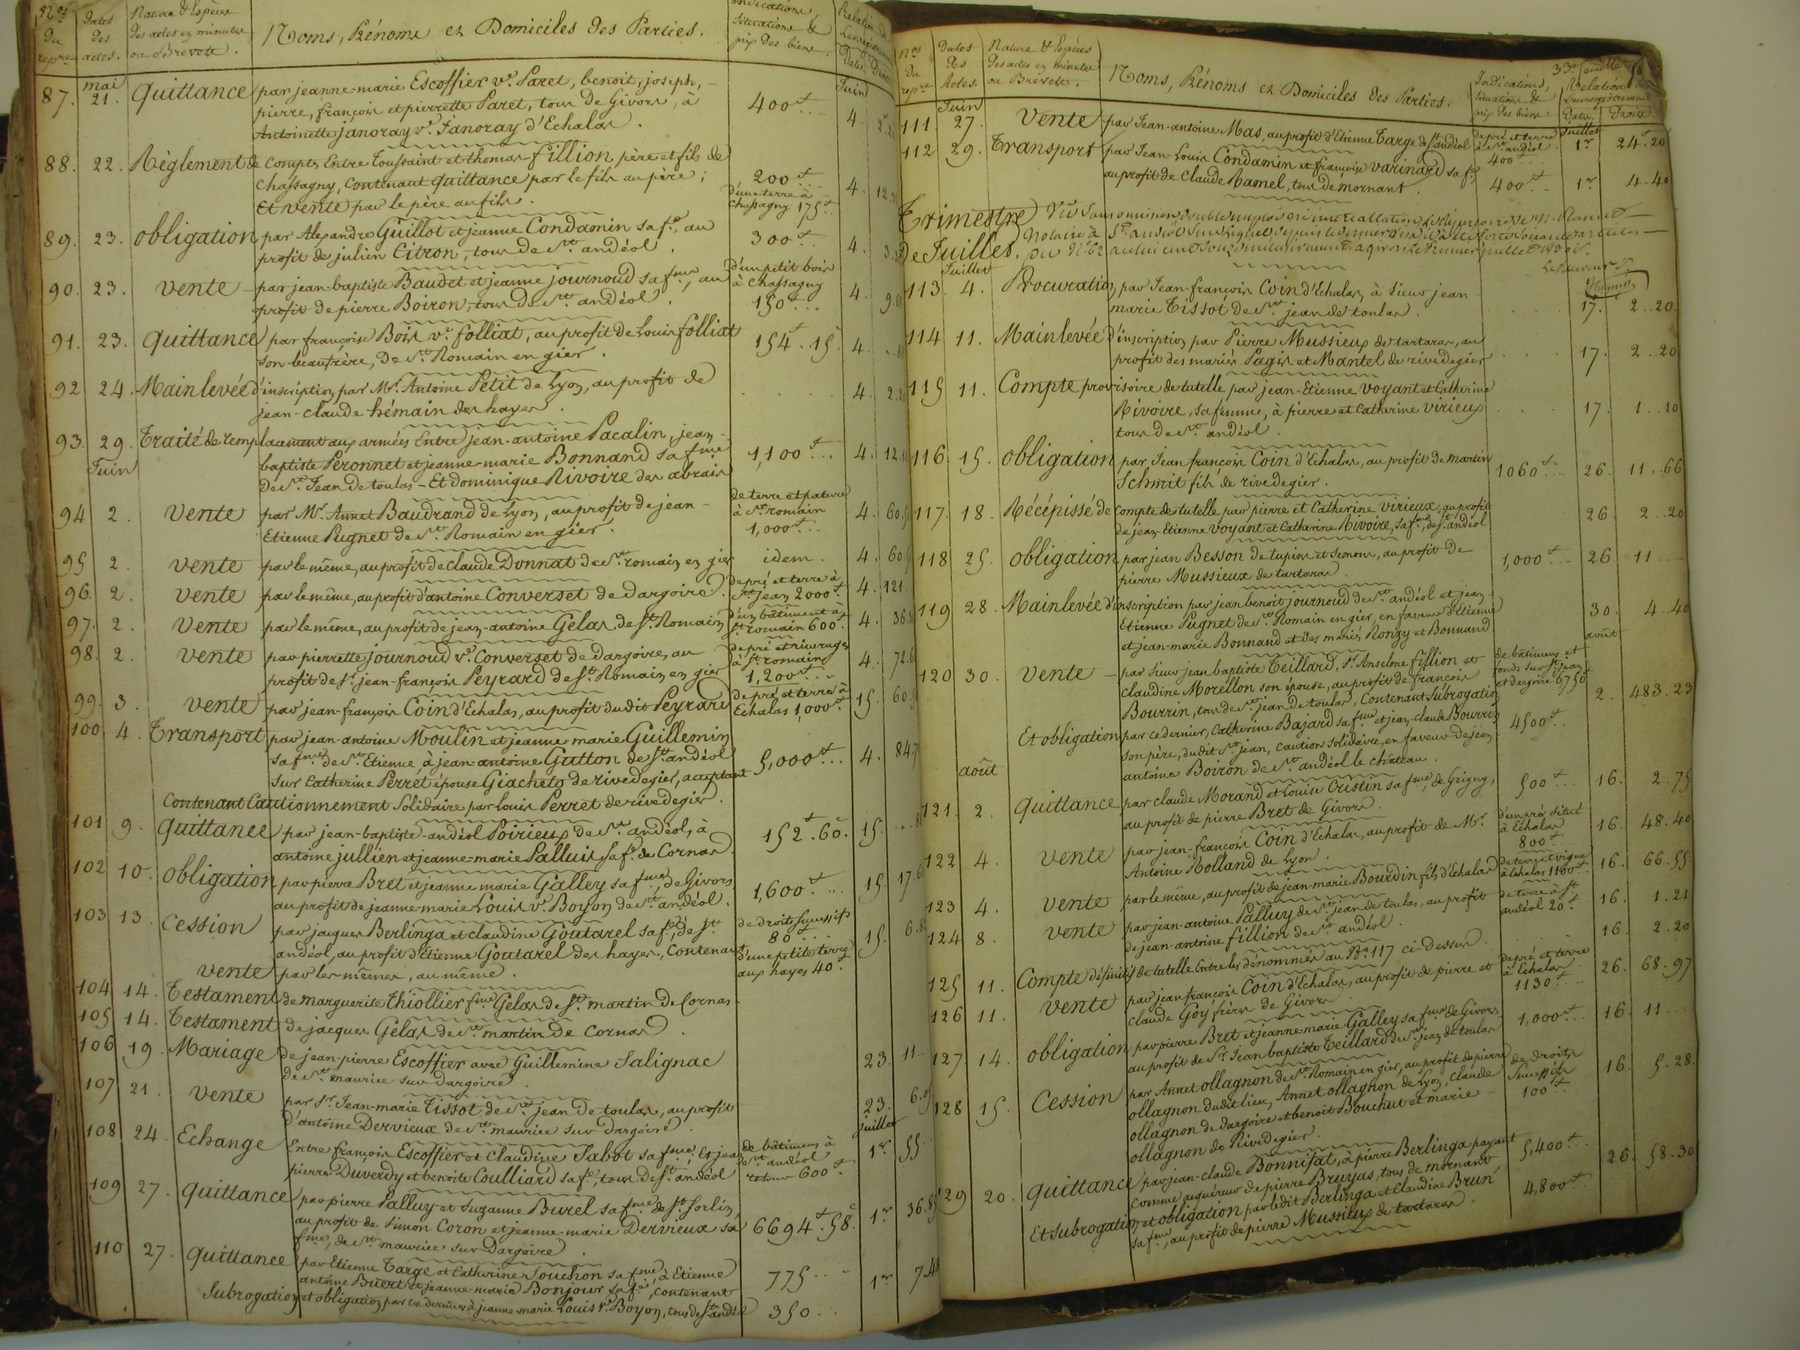 Nos du repre
Dates des actes.
Nature & Espèces des actes en minutes ou Brevets.
Noms, Prénoms et Domiciles des Parties.
Indications, situations & prix des biens.
mai
Juin
87. 21. Quittance par jeanne-marie Escoffier ve Paret, benoit, joseph,
pierre, françois et pierrette Paret, tous de Givors, à 400 4.
Antoinette janoray ve Janoray d'Echalas.
88. 22. Règlement de Compte, Entre Toussaint et thomas fillion père et fils de
Chassagny, Contenant quittance par le fils au père; 200 4. 12.
Et vente par le père au fils. d'une terre à Chassagny 175
89. 23. obligation par Alexandre Guillot et jeanne Condamin sa fe, au 300 4. 3.
profit de julien Citron, tous de St andéol.
90. 23. vente par jean-baptiste Baudet et jeanne journoud sa fme, au d'un petit bois à Chassagny 4. 9.
profit de pierre Boiron, tous de St andéol. 150
91. 23. Quittance par françoise Bois ve folliat, au profit de Louis folliat 154. 15. 4.
son beaufrère, de St Romain en gier.
92 24. Mainlevée d'inscription par Mr. Antoine Petit de Lyon, au profit de 4. 2.
jean-claude hémain des hayes.
93. 29. Traité de remplacement aux armées Entre jean-antoine Pacalin, jean-
baptiste Peronnet et jeanne-marie Bonnand sa fme 1,100 4. 12.
Juin
de St Jean de toulas - Et dominique Rivoire des abrais
94 2. vente par Mr. Annet Baudrand de Lyon, au profit de jean- de terre et pature à St romain 4. 60.
Etienne Pugnet de St Romain en gier. 1,000
95 2. vente par le même, au profit de Claude Donnat de St romain en gier idem. 4. 60.
96. 2. vente par le même, au profit d'antoine Converset de dargoire. de pré et terre à St jean 2000 4. 121.
97. 2. vente par le même, au profit de jean-antoine Gelas de St Romain d'un bâtiment à St romain 600 4. 36.
98. 2. vente par pierrette journoud ve Converset de dargoire, au de pré et rivages à St romain 4. 72.
profit de sr. jean-françois Peyrard de St Romain en gier 1,200
99. 3. vente par jean-françois Coin d'Echalas, au profit dudit Peyrard de pré et terre à Echalas 1,000 15. 60.
100 4. Transport par jean-antoine Moulin et jeanne-marie Guillemin
sa fme de St Etienne, à jean-antoine Gutton de St andéol 5,000 4. 84.
sur Catherine Perret épouse Giachetg de rivedegier, acceptant
Contenant Cautionnement solidaire par louis Perret de rivedegier.
101 9. Quittance par jean-baptiste-andéol Poirieux de St andéol, à 152. 60. 15.
antoine jullien et jeanne-marie Palluis sa fe de Cornas.
102 10. obligation par pierre Bret et jeanne marie Galley sa fme, de Givors 1,600 15. 17.
au profit de jeanne-marie Louis ve Boyon de St andéol.
103 13. Cession par jacques Berlinga et claudine Goutarel sa fe, de St de droits successifs 80 15. 6.
andéol, au profit d'Etienne Goutarel des hayes, Contenant d'une petite terre
vente par les mêmes, au même. aux hayes 40
104 14. Testament de marguerite Thiollier fme Gelas de St martin de Cornas.
105 14. Testament de jacques Gelas de St martin de Cornas.
106 19. Mariage de jean-pierre Escoffier avec Guillemine Salignac 23 11
de St maurice sur dargoire.
107 21. vente par Sr. Jean-marie Tissot de St jean de toulas, au profit 23. 6.
d'antoine Dervieux de St maurice sur dargoire. juillet
108 24. Echange Entre françois Escoffier et Claudine Sabot sa fme, Et jean de bâtimens à St andéol 1er 55
pierre Duverdy et benoite Coulliard sa fe, tous de St andéol retour 600
109 27. Quittance par pierre Palluy et Suzanne Burel sa fme de St Sorlin 6694. 58. 1er 36.
au profit de Simon Coron et jeanne-marie Dervieux sa
fme, de St maurice sur Dargoire.
110 27. Quittance par Etienne Targe et Catherine Souchon sa fme, à Etienne 775 1er 7.
antoine Buer et jeanne-marie Bonjour sa fe, Contenant
Subrogation et obligation par les derniers à jeanne-marie Louis ve Boyon, tous de St andéol 350
33e feuille
Nos du repre
Dates des Actes.
Nature & Espèces des actes en minutes ou Brevets.
Noms, Prénoms et Domiciles des Parties.
Indications, situations & prix des biens.
Relation de l'enregistrement
Dates. Droits.
Juin
juillet
111. 27. Vente par Jean-antoine Mas, au profit d'Etienne Targe de St andéol de pré et terre à St andéol 400 1er 24.20
112 29. Transport par Jean-Louis Condamin et françoise Varinard sa fe 400 1er 4.40
au profit de Claude Ramel, tous de mornant.
Trimestre
de Juillet.
Juillet
113. 4. Procuration par Jean-françois Coin d'Echalas, à Sieur jean
marie Tissot de St jean de toulas. 17. 2..20
114 11. Mainlevée d'inscription par Pierre Mussieux de tartaras, au
profit des mariés Pagis et Mantel de rivedegier 17. 2..20
115 11. Compte provisoire de tutelle par jean-Etienne Voyant et Catherine
Rivoire, sa femme, à pierre et Catherine virieux 17. 1..10
tous de St andéol.
116. 15. obligation par Jean françois Coin d'Echalas, au profit de martin 1060 26. 11..66
Schmit fils de rivedegier.
117. 18. Récépissé de Compte de tutelle par pierre et Catherine virieux, au profit 26 2..20
de jean-Etienne Voyant et Catherine Rivoire, sa fme, de St andéol
118 25. obligation par jean Besson de tupins et semons, au profit de 1,000 26 11
pierre Mussieux de tartaras.
119 28. Mainlevée d'inscription par jean benoit journoud de St andéol et jean-
Etienne Pugnet de St Romain en gier, en faveur d'Etienne 30. 4..40
et jean-marie Bonnand et des mariés Rongy et Bonnand
août
120 30. Vente par Sieur jean baptiste Teillard, Sr. Anselme fillion et de bâtimens et fonds sur St jean et dargoire 6750
Claudine Morellon son épouse, au profit de françois 2. 483.23
Bourrin, tous de St jean de toulas, Contenant Subrogation
Et obligation par ce dernier, Catherine Bajard sa fme et jean-claude Bourrin 4500
son père, dudit St jean, Cautions solidaire, en faveur de jean
antoine Boiron de St andéol le chateau.
août
121. 2. Quittance par claude Morand et Louise Cristin sa fme, de Grigny, 500 16. 2..75
au profit de pierre Bret de Givors.
122 4. vente par jean-françois Coin d'Echalas, au profit de Mr. d'un pré situé à Echalas 800 16. 48.40
Antoine Rolland de Lyon.
123 4. vente par le même, au profit de jean-marie Bourdin fils d'Echalas de terre et vigne à Echalas 1100 16. 66.55
124 8. vente par jean-antoine Palluy de St jean de toulas, au profit de terre à St andéol 20 16. 1.21
de jean-antoine fillion de St andéol.
125 11. Compte définitif de tutelle Entre les dénommés au No. 117 ci-dessus. 16. 2.20
126 11. vente par jean françois Coin d'Echalas, au profit de pierre et de pré et terre à Echalas 1130 26. 68.97
Claude Goy frères de Givors.
127 14. obligation par pierre Bret et jeanne-marie Galley sa fme de Givors 1,000 16. 11
au profit de Sr. Jean baptiste Teillard de St jean de toulas
128 15. Cession par Annet ollagnon de St Romain en gier, au profit de pierre de droits successifs 100 16. 5.28
ollagnon dudit lieu, Annet ollagnon de Lyon, Claude
ollagnon de dargoire et benoit Bouchut et marie
ollagnon de Rivedegier.
129 20. Quittance par jean-claude Bonnifat, à pierre Berlinga payant 5,400 26. 58.30
Comme acquéreur de pierre Bruyas, tous de mornant
Et subrogation et obligation par ledit Berlinga et Claudine Brun 4,800
sa fme, au profit de pierre Mussieux de tartaras.